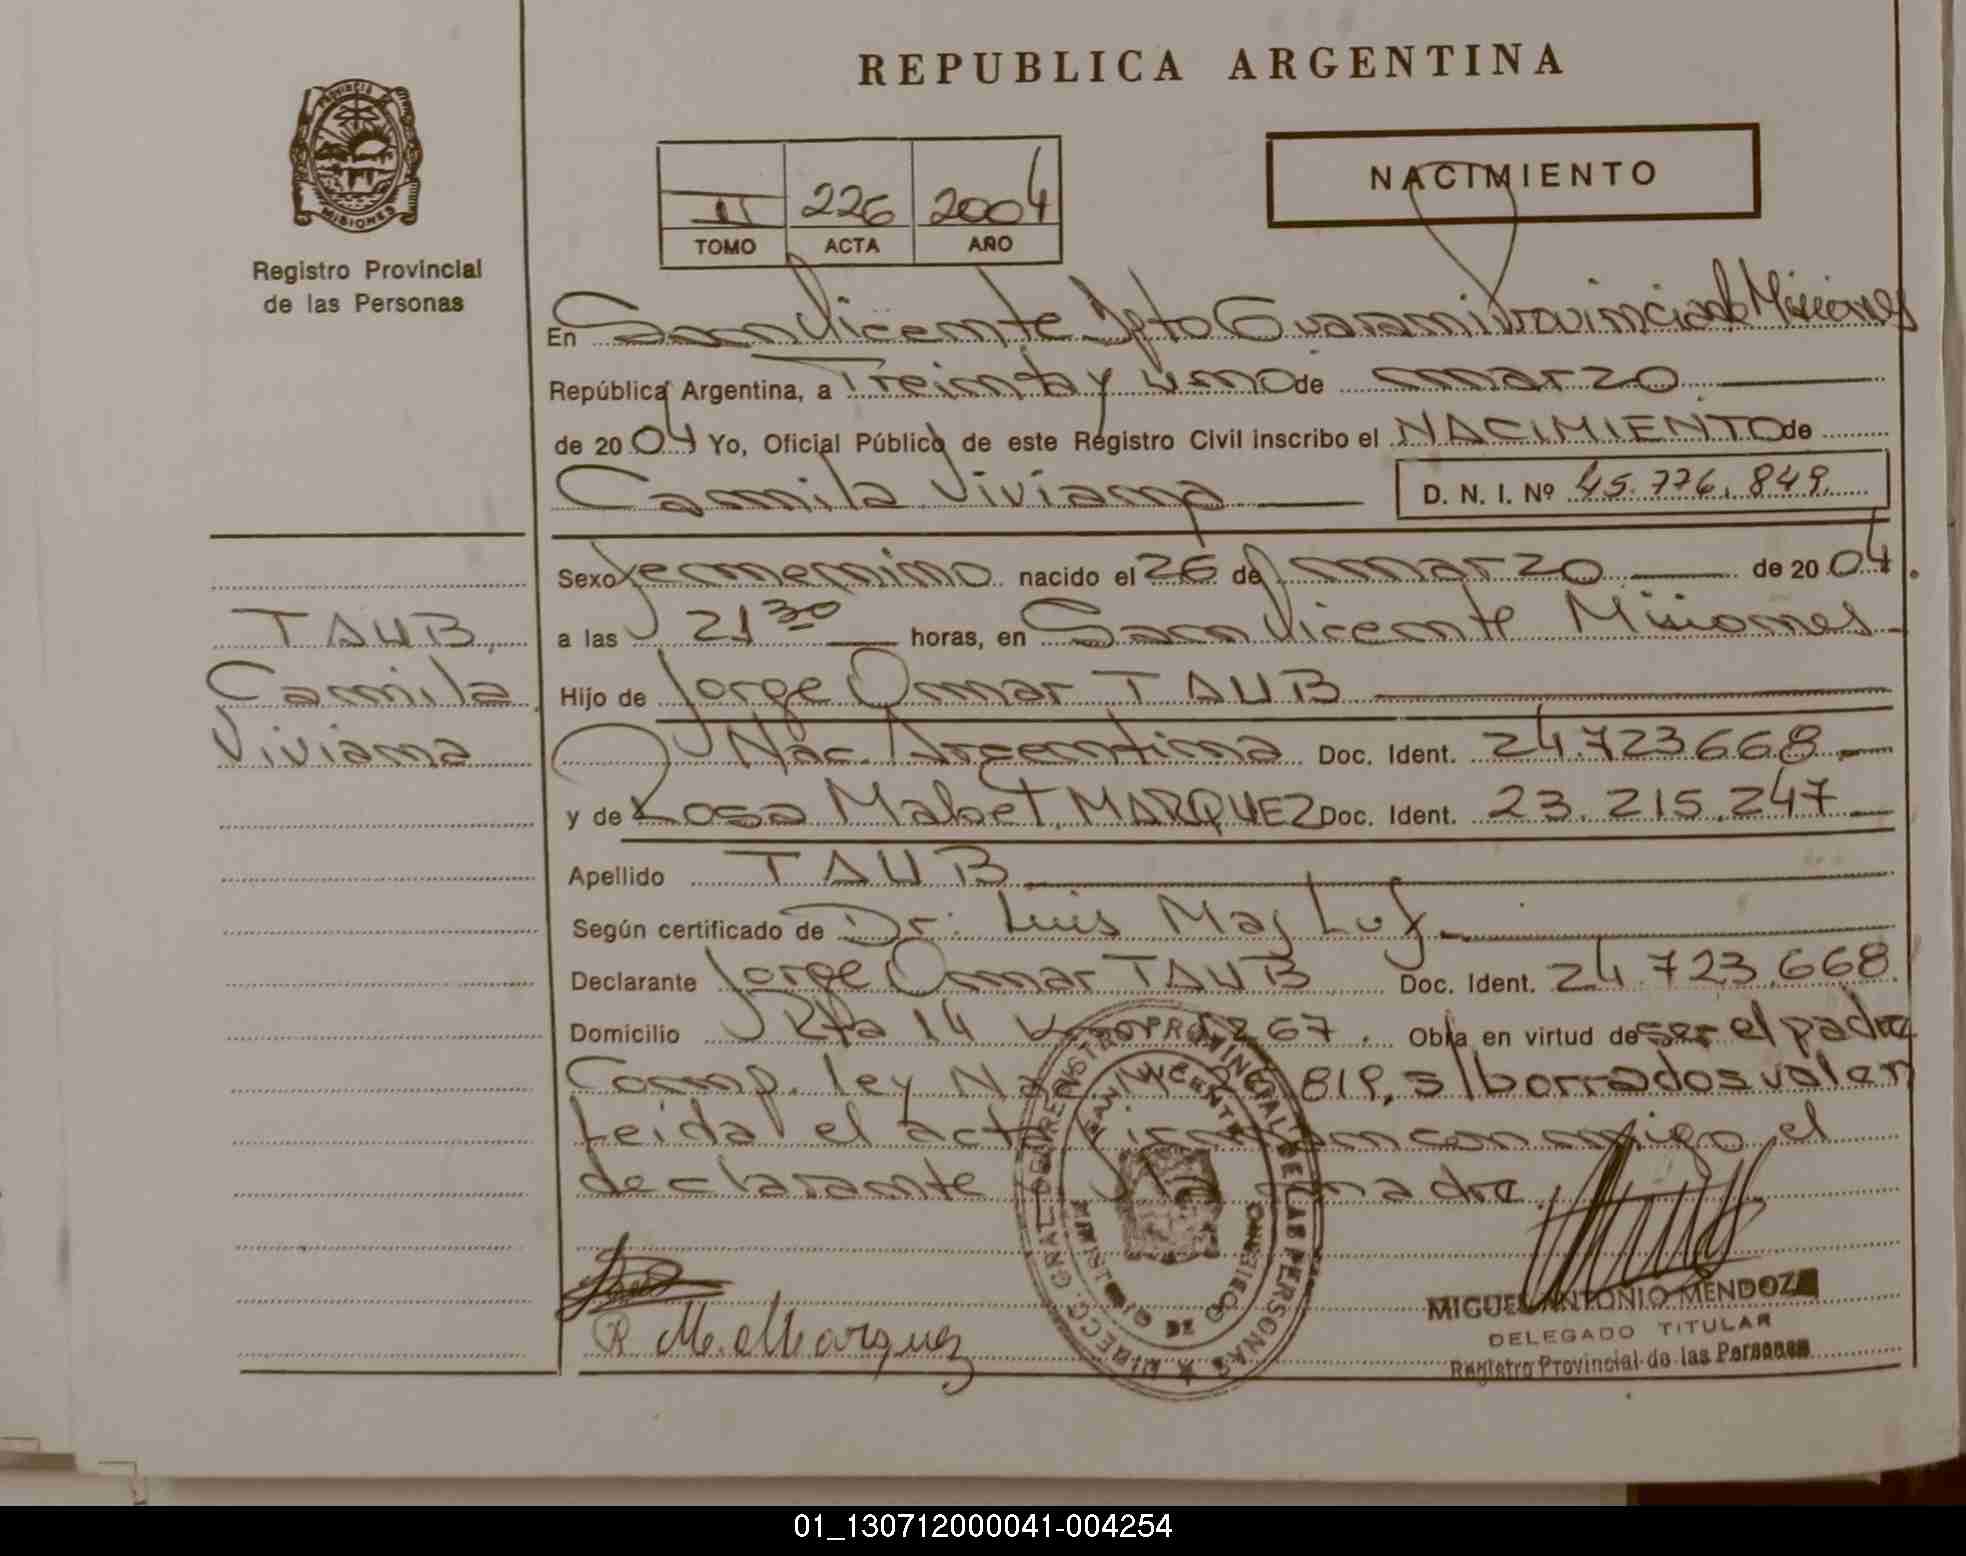 REPUBLICA ARGENTINA
PROVINCIA
MISIONES
Registro Provincial
de las Personas
II 226 2004
TOMO ACTA AÑO
NACIMIENTO
En San Vicente Dpto Guarani Provincia de Misiones
República Argentina, a Treinta y uno de marzo
de 2004 Yo, Oficial Público de este Registro Civil inscribo el NACIMIENTO de
Camila Viviana
D. N. I. Nº 45.776.849
Sexo femenino nacido el 26 de marzo de 2004
a las 21 30 horas, en San Vicente Misiones
Hijo de Jorge Omar TAUB
Nac. Argentina Doc. Ident. 24.723.668
y de Rosa Mabel MARQUEZ Doc. Ident. 23.215.247
Apellido TAUB
Según certificado de Dr. Luis
Declarante Jorge Omar TAUB Doc. Ident. 24.723.668
Domicilio Rta 14 1267. Obra en virtud de ser el padre
Comp. ley 819, s/borrados valen
Leida el acta conmigo el
declarante madre.
TAUB
Camila
Viviana
R M. Marquez
DIRECC. GRAL. DEL REGISTRO PROVINCIAL DE LAS PERSONAS
SAN VICENTE
MINISTERIO DE GOBIERNO
MIGUEL ANTONIO MENDOZA
DELEGADO TITULAR
Registro Provincial de las Personas
01_130712000041-004254